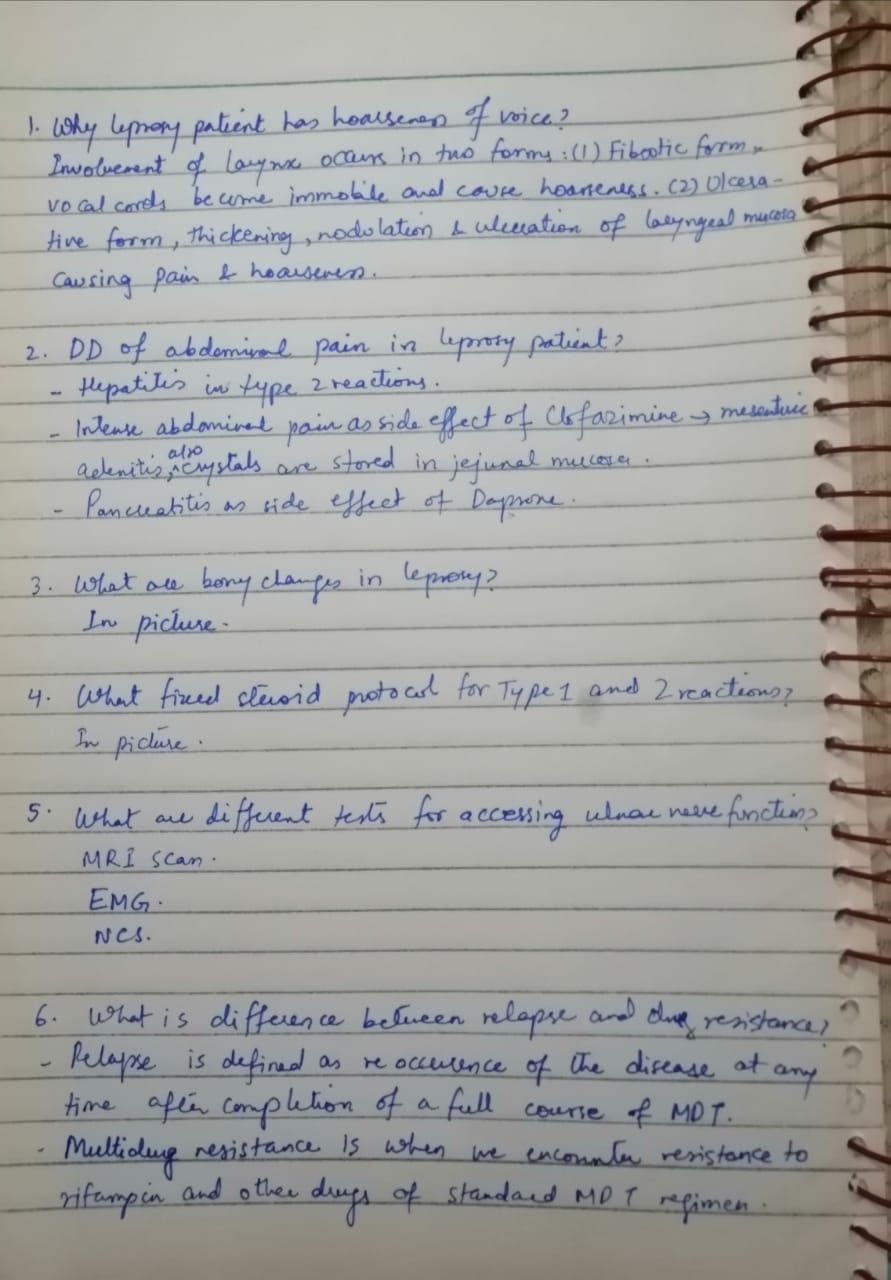 1. Why leprosy patient has hoarseness of voice?
Involvement of larynx occurs in two forms : (1) Fibrotic form,
vocal cords become immobile and cause hoarseness. (2) Ulcera-
tive form, thickening, nodulation & ulceration of laryngeal mucosa
causing pain & hoarseness.
2. DD of abdominal pain in leprosy patient?
- Hepatitis in type 2 reactions.
- Intense abdominal pain as side effect of Clofazimine → mesenteric
adenitis, also crystals are stored in jejunal mucosa.
- Pancreatitis as side effect of Dapsone.
3. What are bony changes in leprosy?
In picture.
4. What fixed steroid protocol for Type 1 and 2 reactions?
In picture.
5. What are different tests for accessing ulnar nerve function?
MRI scan.
EMG.
NCS.
6. What is difference between relapse and drug resistance?
- Relapse is defined as re occurence of the disease at any
time after completion of a full course of MDT.
- Multidrug resistance is when we encounter resistance to
rifampin and other drugs of standard MDT regimen.